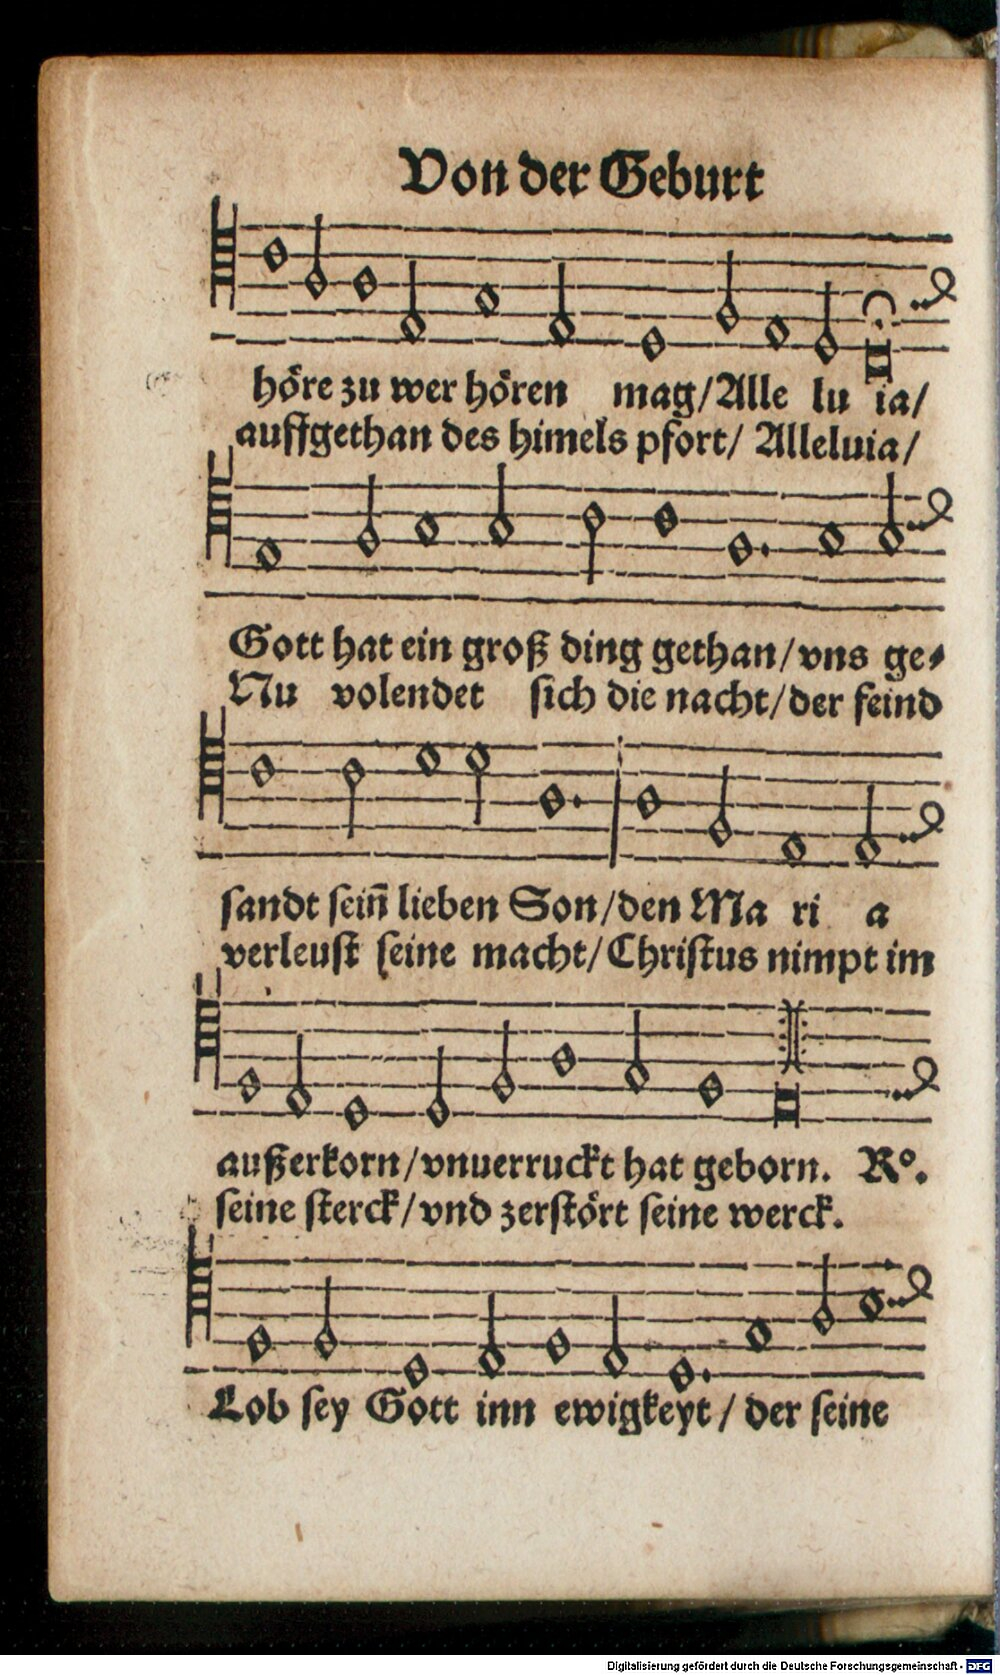 Von der Geburt
höre zu wer hören mag/Alle lu ia/
auffgethan des himels pfort/ Alleluia/
Gott hat ein groß ding gethan/vns ge⸗
Nu volendet sich die nacht/der feind
sandt sein̄ lieben Son/den Ma ri a
verleust seine macht/Christus nimpt im
außerkorn/vnuerruckt hat geborn. Rº.
seine sterck/vnd zerstört seine werck.
Lob sey Gott inn ewigkeyt / der seine
Digitalisierung gefördert durch die Deutsche Forschungsgemeinschaft - DFG